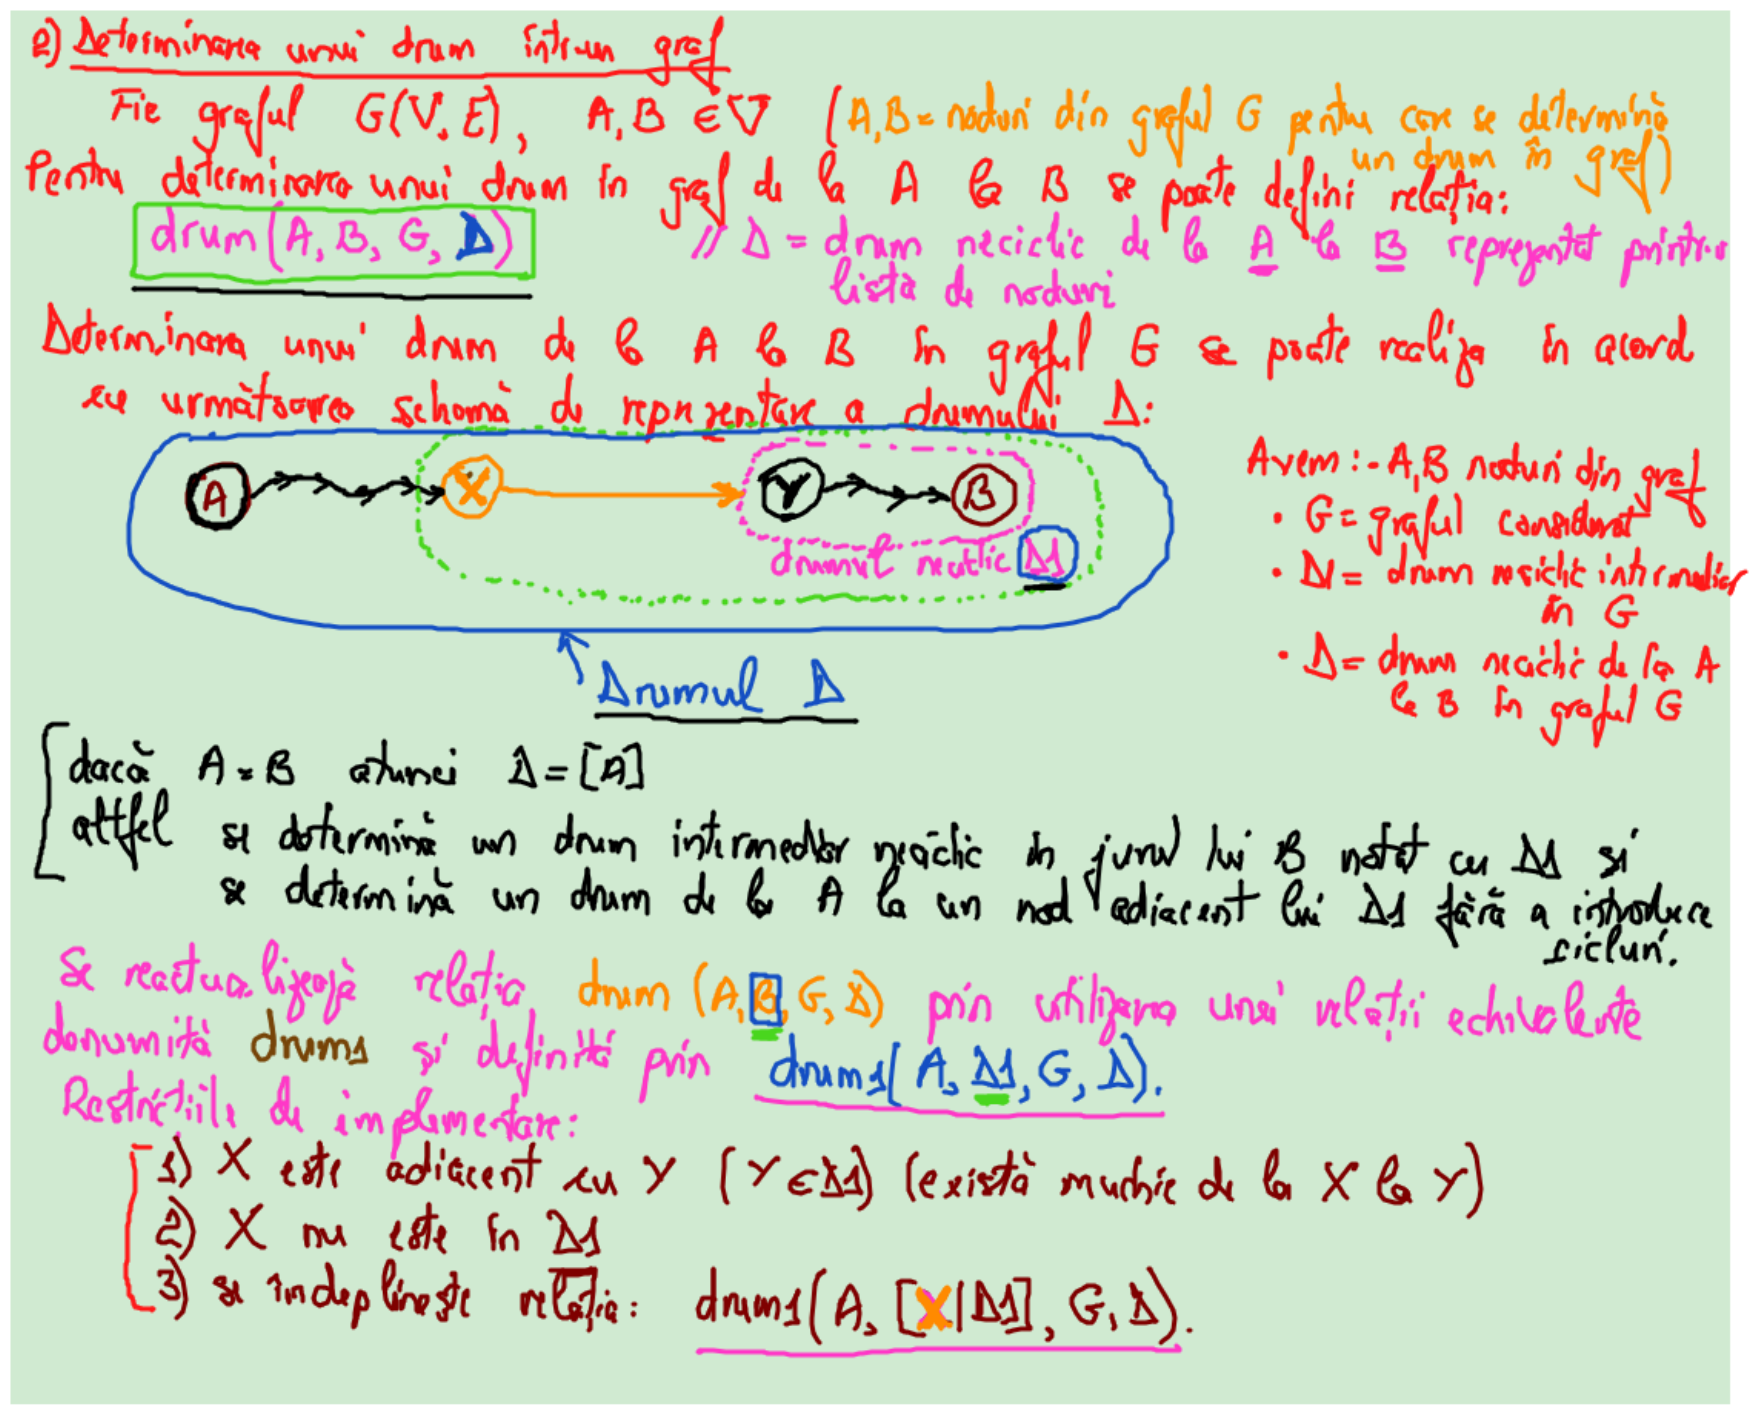 2) Determinarea unui drum într-un graf
Fie graful G(V,E), A,B ∈ V (A,B = noduri din graful G pentru care se determină
un drum în graf)
Pentru determinarea unui drum în graf de la A la B se poate defini relația:
drum(A, B, G, D) // D = drum neciclic de la A la B reprezentat printr-o
listă de noduri
Determinarea unui drum de la A la B în graful G se poate realiza în acord
cu următoarea schemă de reprezentare a drumului D:
A X Y B
drumul neciclic D1
Drumul D
Avem: - A,B noduri din graf
• G = graful considerat
• D1 = drum neciclic intermediar
în G
• D = drum neciclic de la A
la B în graful G
dacă A = B atunci D = [A]
altfel se determină un drum intermediar neciclic în jurul lui B notat cu D1 și
se determină un drum de la A la un nod adiacent lui D1 fără a introduce
cicluri.
Se reactualizează relația drum (A, B, G, D) prin utilizarea unei relații echivalente
denumită drum1 și definită prin drum1( A, D1, G, D).
Restricțiile de implementare:
1) X este adiacent cu Y (Y ∈ D1) (există muchie de la X la Y)
2) X nu este în D1
3) se îndeplinește relația: drum1(A, [X|D1], G, D).